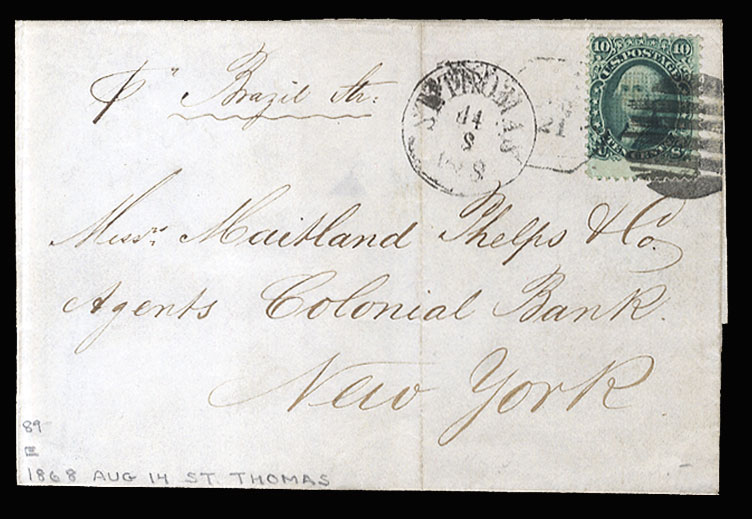 10 10
U.S. POSTAGE
pr Brazil Str:
ST THOMAS
14
8
1868
21
Messrs. Maitland Phelps & Co.
Agents Colonial Bank.
New York
89
E
1868 AUG 14 ST. THOMAS